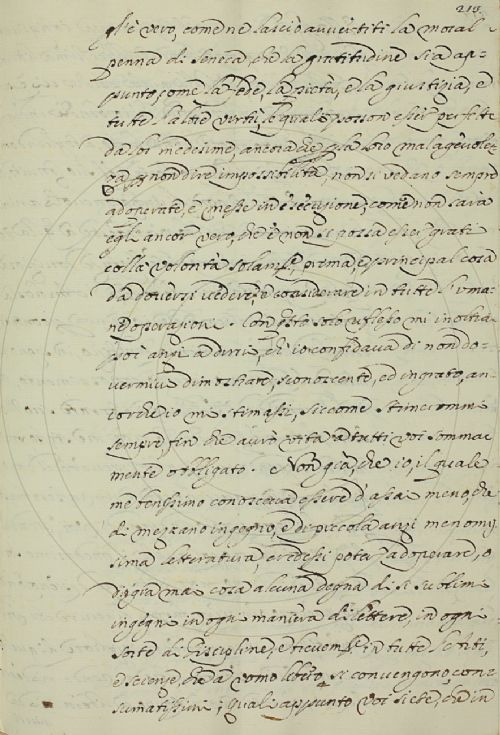 215
gl'è vero, come ne lasciò avvertiti la moral
penna di Seneca, che la gratitudine sia ap-
punto, come la Fede, la pietà, e la giustizia, e
tutte l'altre virtù, le quali posson esser perfette
da loro medesime, ancora che per loro malagevolez-
za, per non dire impossibilità, non si vedano sempre
adoperate, e messe in esecuzione; come non sarà
egli ancor vero, che e' non si possa esser grati
colla volontà solam.te, prima, e principal cosa
da doversi vedere, e considerare in tutte l'uma-
ne operazioni. Con q.sto solo riflesso mi inoltrai
poi anzi a dirvi, ch'io confidava di non do-
vermivi dimostrare, sconoscente, ed ingrato, an-
corchè io mi stimassi, siccome stimerommi
sempre, fin che avrò vita a tutti voi somma-
mente obbligato. e Non già, che io, il quale
me benissimo conosceva essere d'assai meno, che
di mezzano ingegno, e di piccola anzi menomis-
sima letteratura, credessi poter adoperare, o
dir già mai cosa alcuna degna di sì sublimi
ingegni in ogni maniera di lettere, in ogni
sorte di Discipline, e finalm.te in tutte le Arti,
e scienze, che a uomo libero si convengono, con-
sumatissimi; quali appunto voi siete, che in